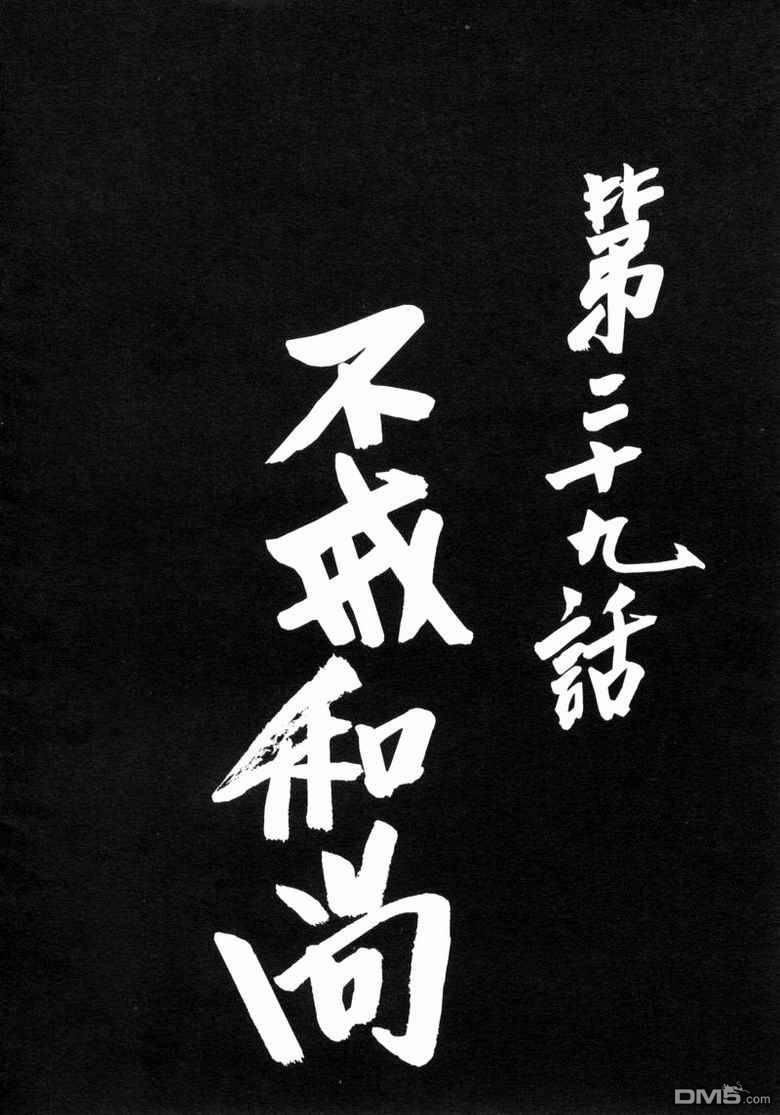 第二十九話
不戒和尚
DM5.com